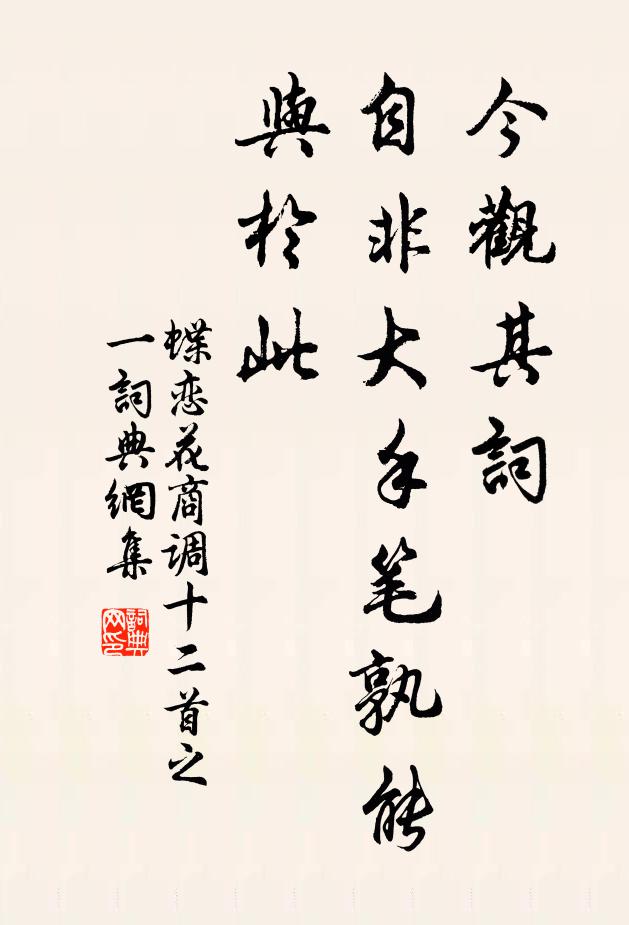 今觀其詞
自非大手笔孰能
與於此
蝶恋花商调十二首之
一詞典網集
詞典网印